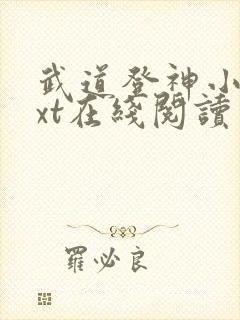 武道登神小
xt在綫閱讀
羅必良